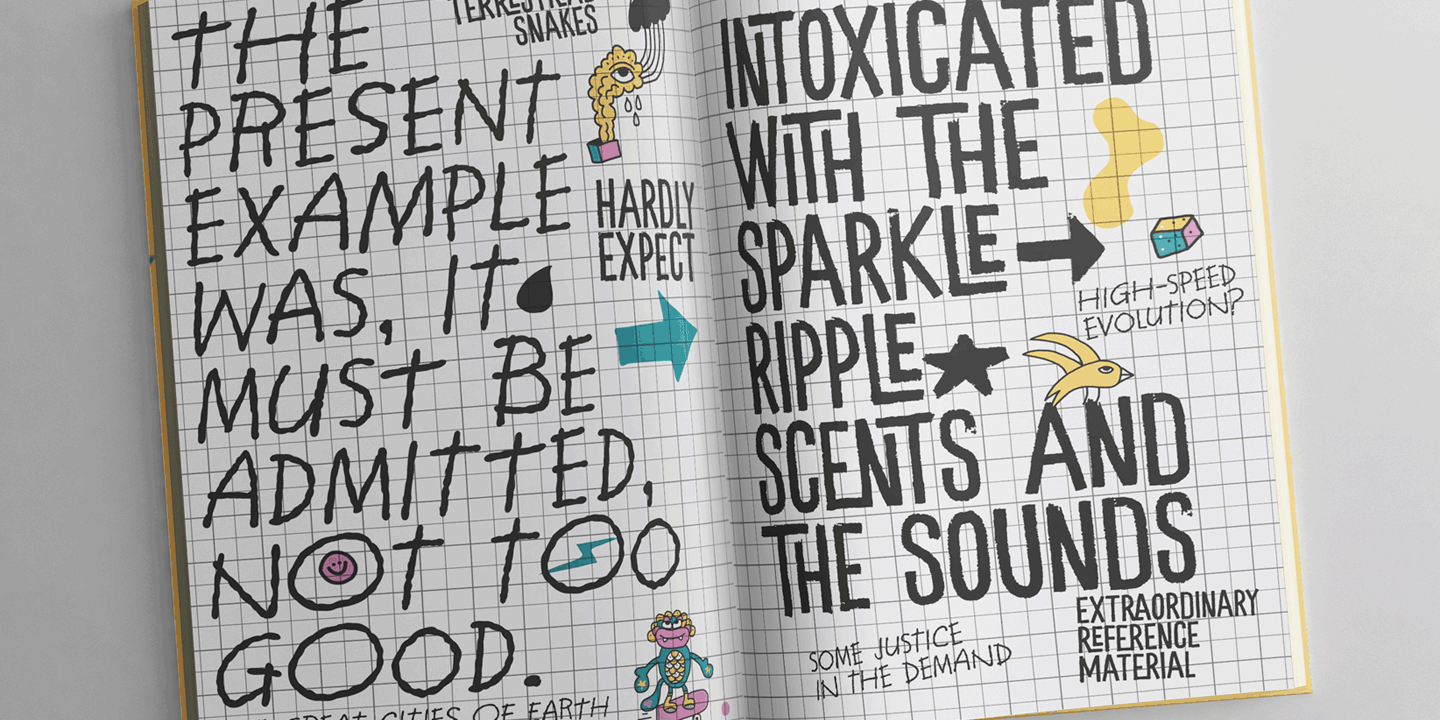 THE
PRESENT
EXAMPLE
WAS, IT
MUST BE
ADMITTED,
NOT TOO
GOOD.
TERRESTRIAL
SNAKES
HARDLY
EXPECT
GREAT CITIES OF EARTH
INTOXICATED
WITH THE
SPARKLE
RIPPLE
SCENTS AND
THE SOUNDS
HIGH-SPEED
EVOLUTION?
SOME JUSTICE
IN THE DEMAND
EXTRAORDINARY
REFERENCE
MATERIAL